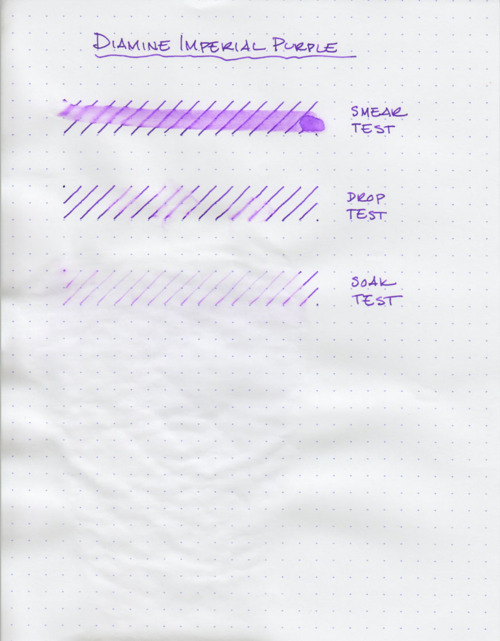 DIAMINE IMPERIAL PURPLE
SMEAR
TEST
DROP
TEST
SOAK
TEST